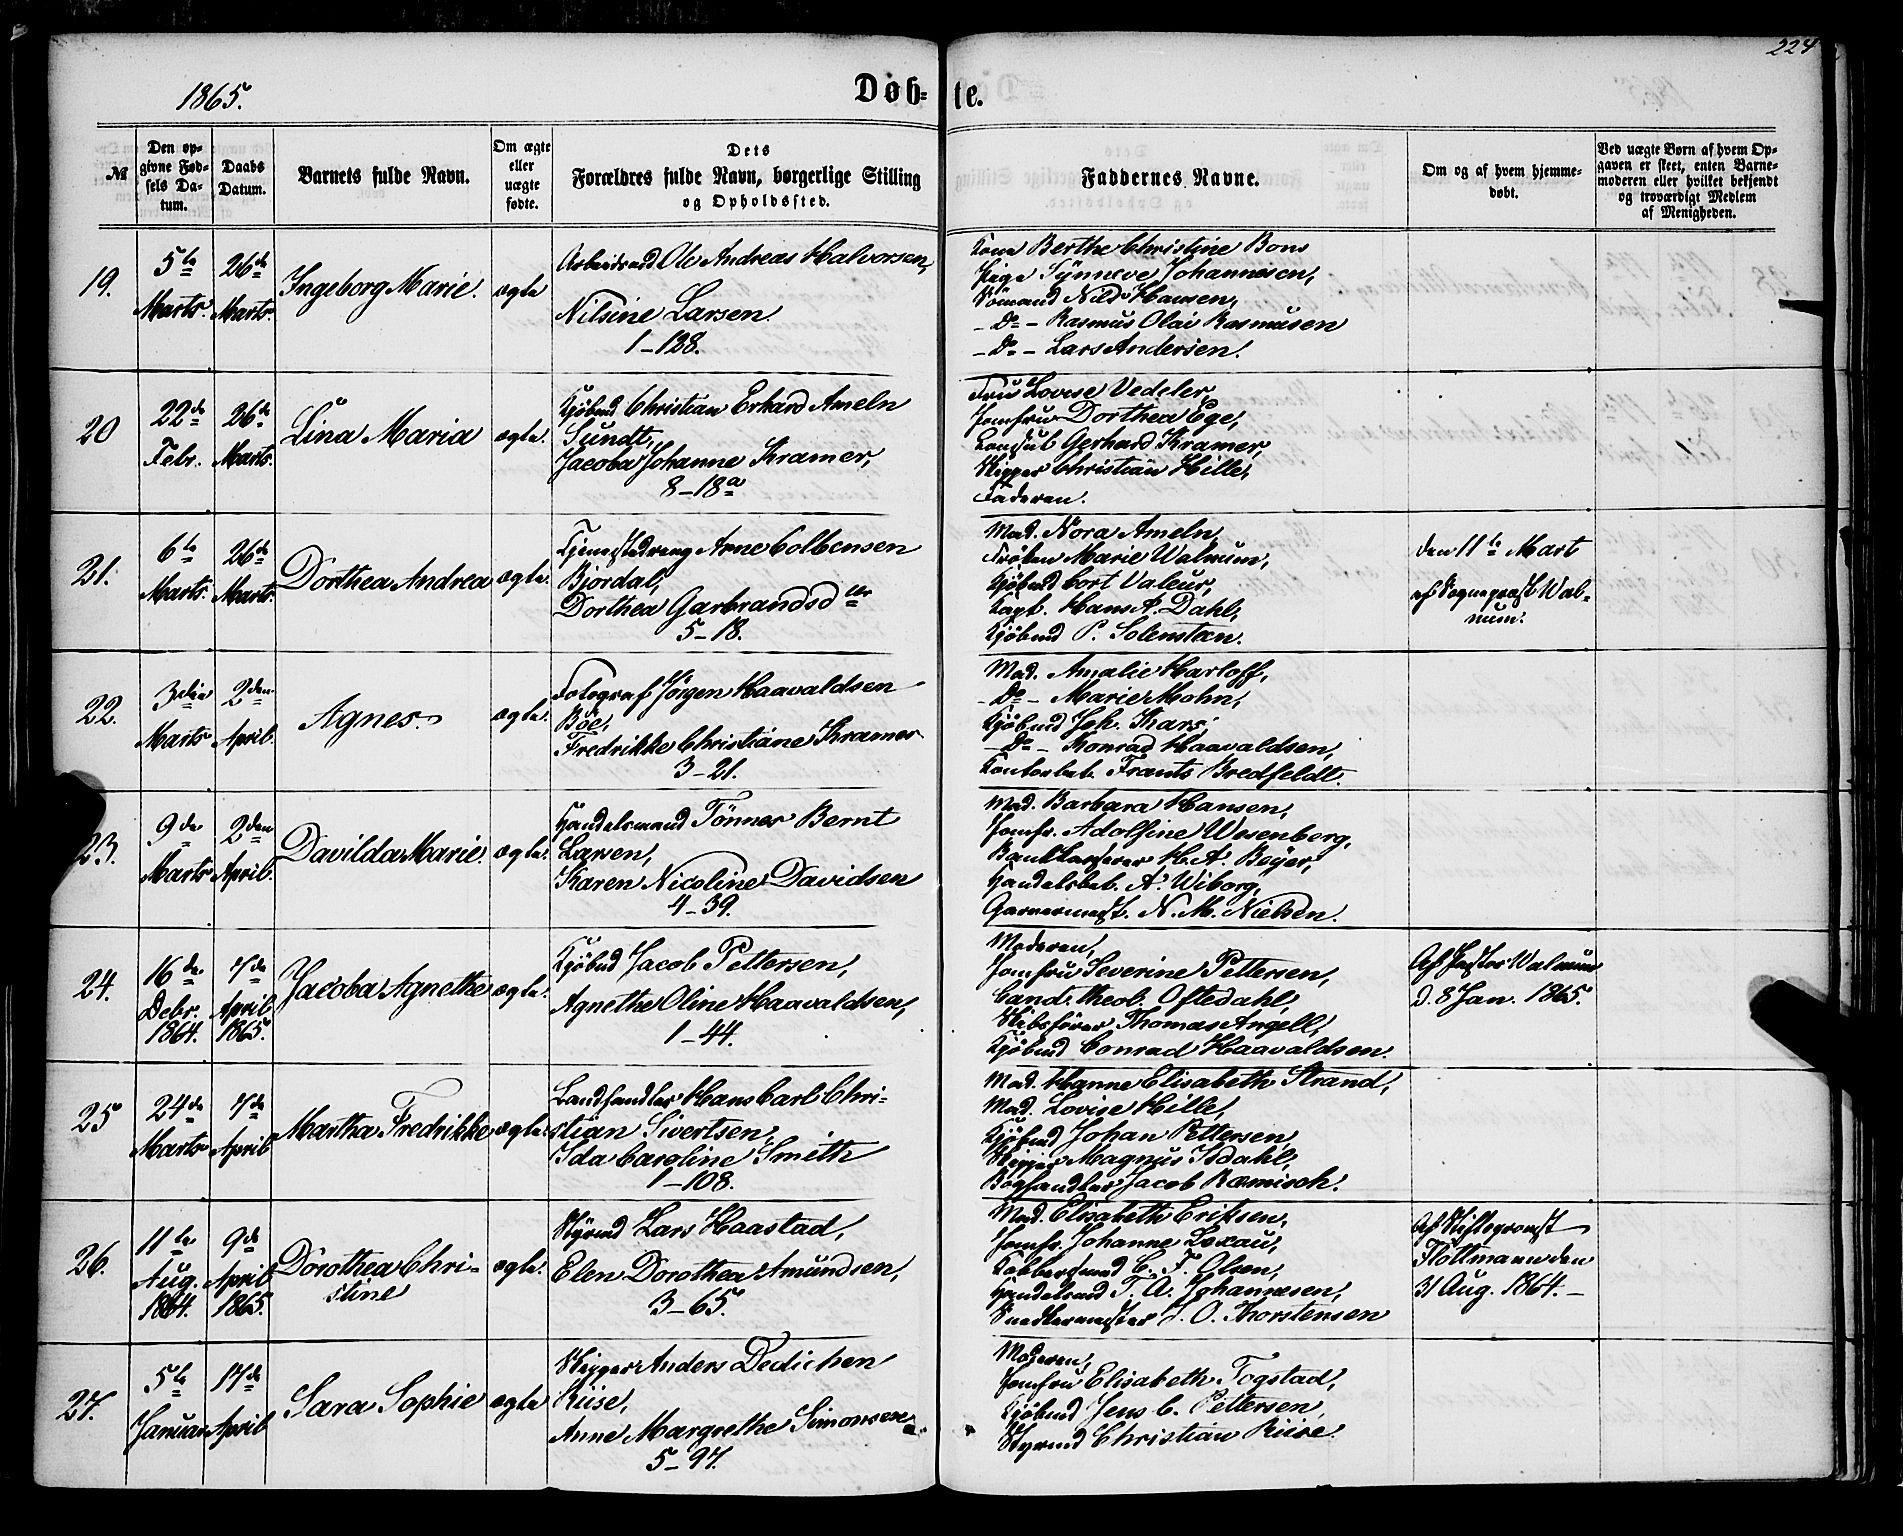 224
1865.
Døb- te.
№
Den op-
givne Fød-
sels Da-
tum.
Daabs
Datum.
Barnets fulde Navn.
Om ægte
eller
uægte
fødte.
Dets
Forældres fulde Navn, borgerlige Stilling
og Opholdssted.
Faddernes Navne.
Om og af hvem hjemme-
døbt.
Ved uægte Børn af hvem Op-
gaven er skeet, enten Barne-
moderen eller hvilket bekjendt
og troværdigt Medlem
af Menigheden.
19.
5te
Marts.
26de
Marts.
Ingeborg Marie.
ægte
Arbeidsmd Ole Andreas Halvorsen,
Nilsine Larsen.
1-128.
Kone Berthe Christine Bons
Pige Synneve Johannesen,
Sömand Nils Hansen,
- Do - Rasmus Olai Rasmusen
- Do - Lars Andersen.
20
22de
Febr.
26de
Marts.
Lina Maria
ægte.
Kjöbmd Christian Erhard Ameln
Sundt,
Jacoba Johanne Kramer,
8-18a
Fru Lovise Vedeler,
Jomfru Dorthea Ege,
Consul Gerhard Kramer,
Skipper Christian Hille,
Faderen.
21.
6te
Marts.
26de
Marts.
Dorthea Andrea
ægte.
Tjenestedreng Arne Colbensen
Bjordal,
Dorthea Garbrandsdter
5-18.
Mad. Nora Ameln,
Fröken Marie Walnum,
Kjöbmd Cort Valeur,
Capt. Hans P. Dahl,
Kjöbmd P. Solensteen.
den 11te Mart
af Sognepræst Wal-
num.
22.
3die
Marts
2den
April.
Agnes.
ægte.
Fotograf Jörgen Haavaldsen
Böe,
Fredrikke Christiane Kramer
3-21.
Mad. Amalie Harloff,
- Do - Marie Mohn,
Kjöbmd Joh. Kars,
- Do - Konrad Haavaldsen,
Contorbet. Frants Bredfeldt.
23.
9de
Marts
2den
April.
Davilda Marie.
ægte.
Handelsmand Tönnes Bernt
Larsen,
Karen Nicoline Davidsen
4-39.
Mad. Barbara Hansen,
Jomfr. Adolfine Wesenberg,
Bankkasserer H. A. Beyer,
Handelsbet. A. Wiborg,
Garvermest. N. M. Nielsen.
24.
16de
Debr.
1864.
7de
April
1865.
Jacoba Agnethe
ægte.
Kjöbmd Jacob Pettersen,
Agnethe Oline Haavaldsen,
1-44.
Moderen,
Jomfru Severine Pettersen,
Cand. theol. Oftedahl,
Skibsförer Thomas Angell,
Kjöbmd Conrad Haavaldsen.
Af Pastor Walnum
d. 8 Jan. 1865.
25
24de
Marts
7de
April
Martha Fredrikke
ægte.
Landhandler Hans Carl Chri-
stian Sivertsen,
Ida Caroline Smith
1-108.
Mad. Hanne Elisabeth Strand,
Mad. Lovise Hille,
Kjöbmd Johan Pettersen,
Skipper Magnus Isdahl,
Boghandler Jacob Ræmisch.
26.
11te
Aug.
1864.
9de
April
1865.
Dorothea Chri-
stine
ægte.
Styrmd Lars Haastad,
Elen Dorothea Amundsen,
3-65.
Mad. Elisabeth Eriksen,
Jomfr. Johanne Lexau,
Kobbersmed C. F. Olsen,
Handelsmd T. A. Johannesen,
Snedkermester J. O. Thorstensen
Af Stiftsprovst
Flottmann den
31 Aug. 1864. -
27.
5te
Januar
17de
April
Sara Sophie
ægte
Skipper Anders Dedichen
Riise,
Anne Margrethe Simonsen.
5-97.
Moderen,
Jomfru Elisabeth Togstad,
Kjöbmd Jens C. Pettersen,
Styrmd Christian Riise.